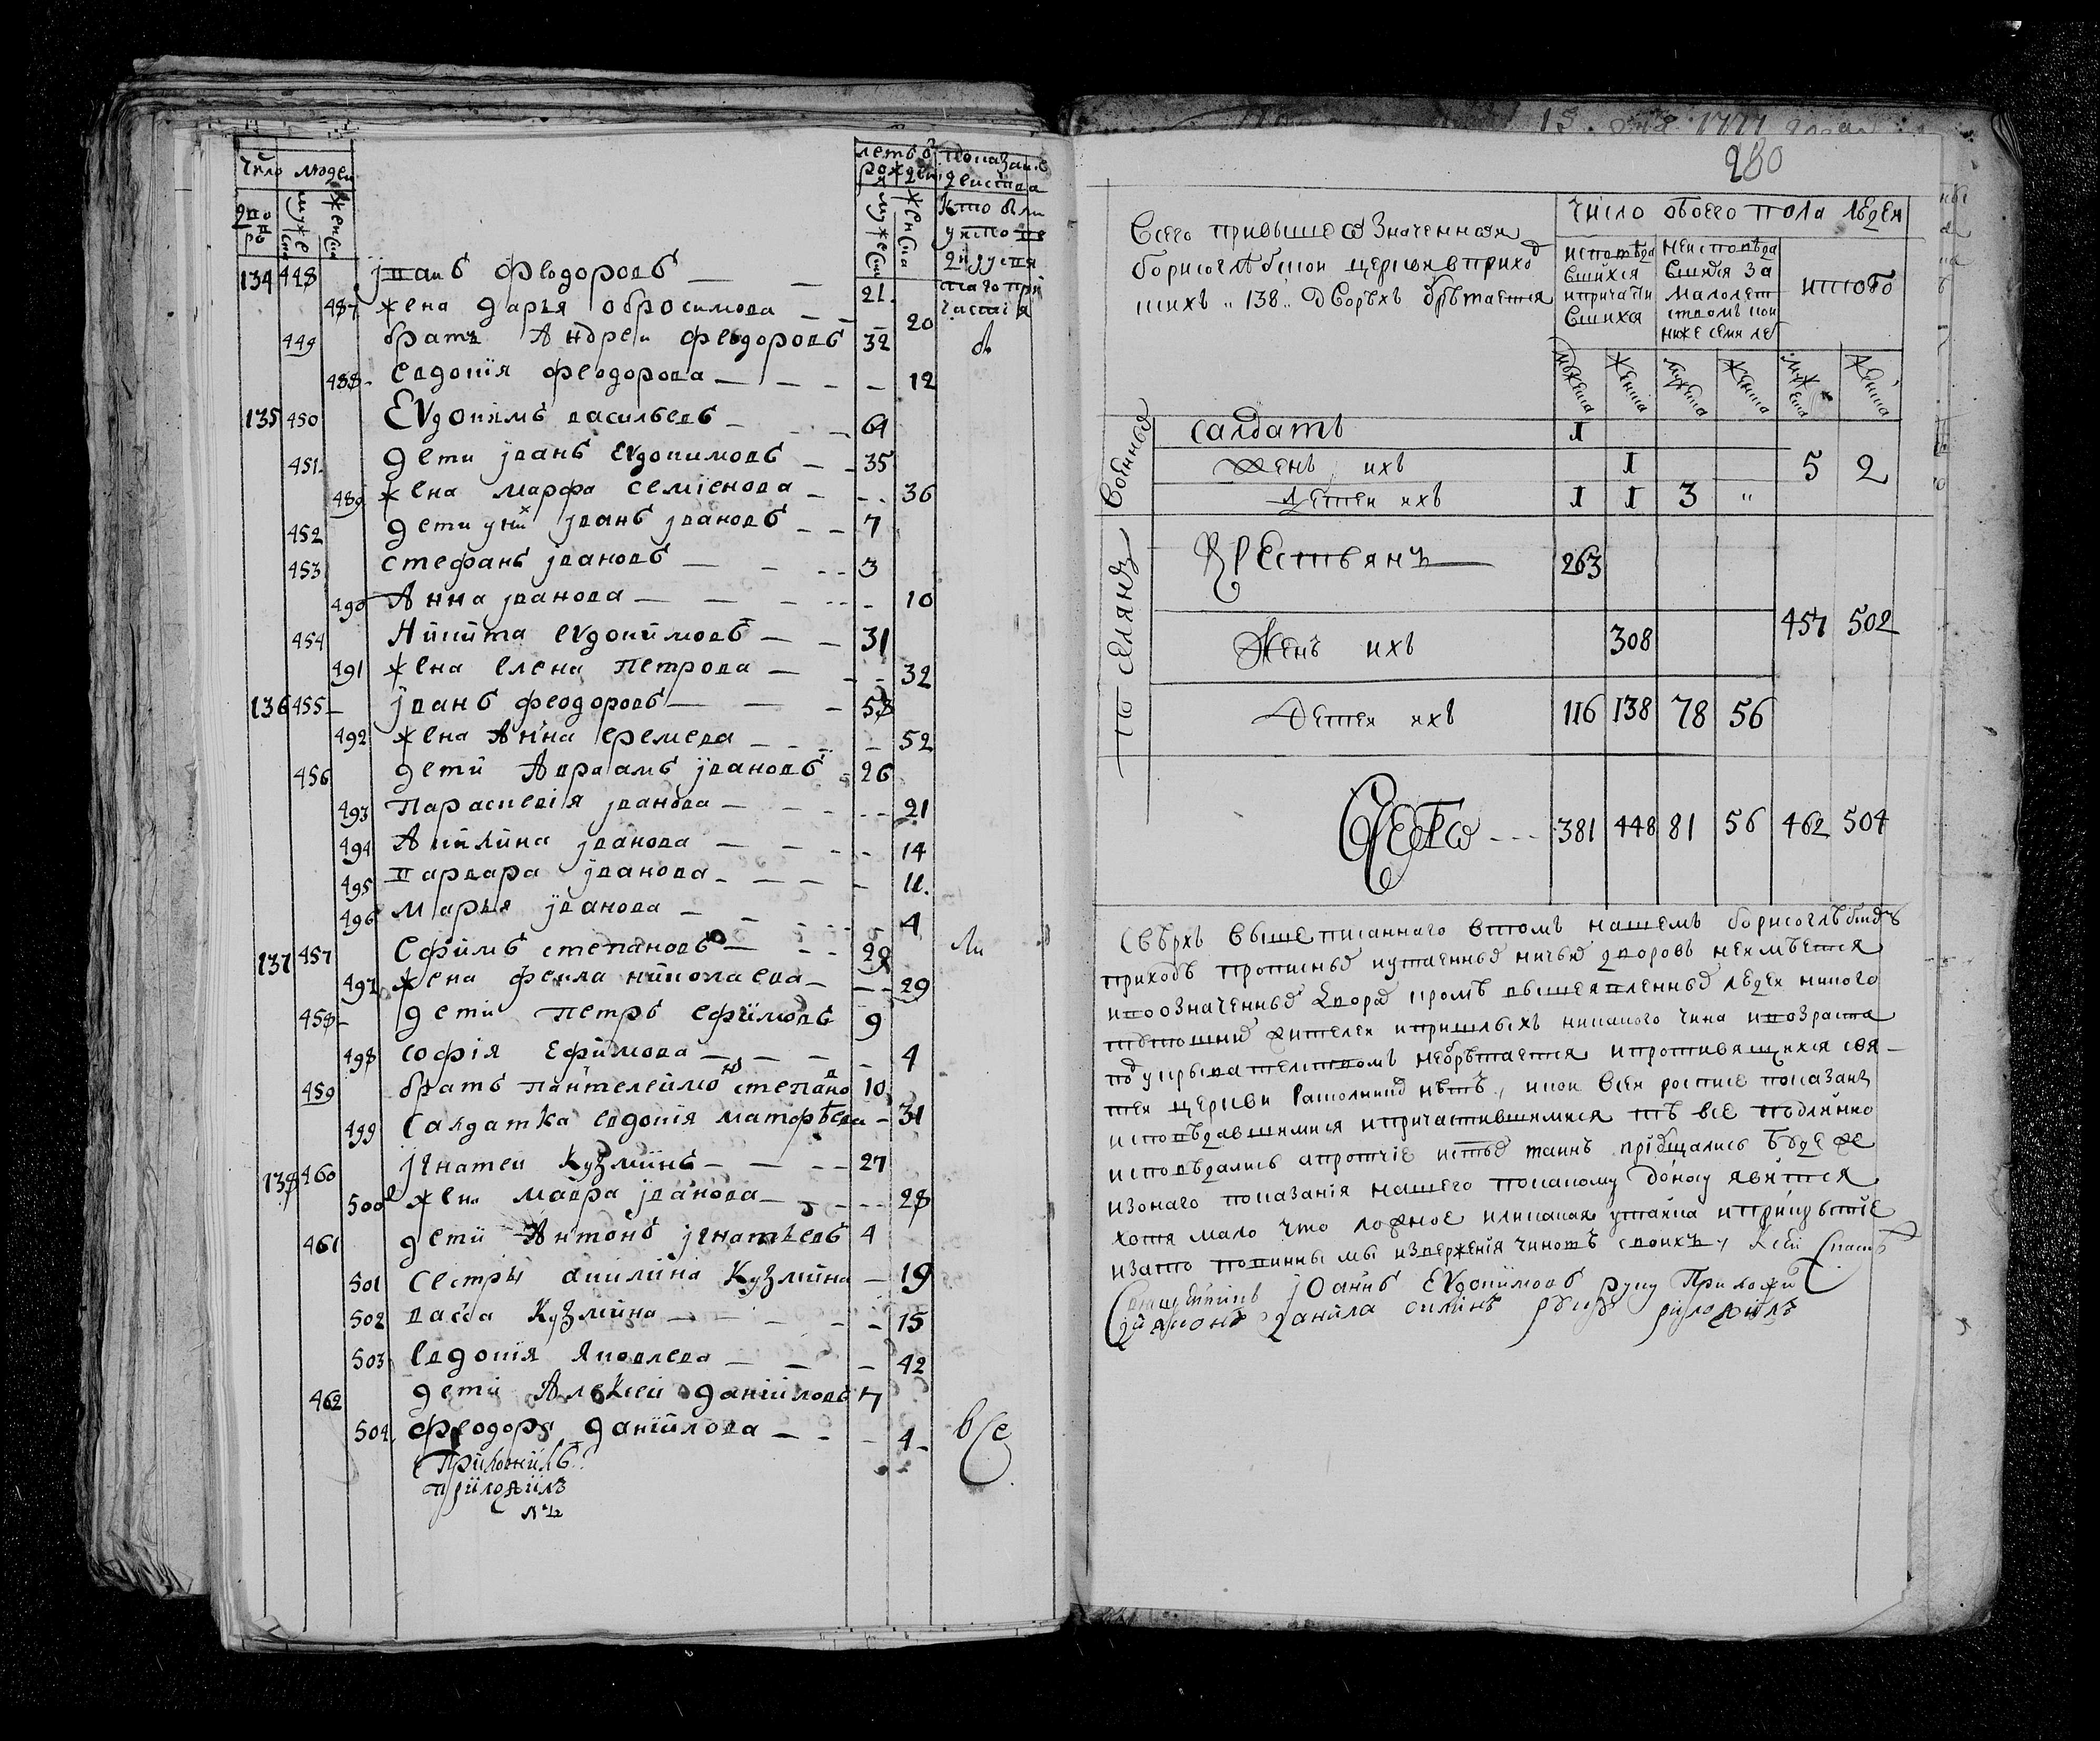 число людеи
лета ѿ рожден
134 448 Іванъ Феодоровъ 21
487 жена Дарья Обросимова 20
449 братъ Андреи Феодоровъ 32
488 Евдокія Феодорова 12
135 450 Еѵдокимъ Васильевъ 64
451 дети Іванъ Еѵдокимовъ 35
489 жена Марфа Семіенова 36
452 дети у них Іванъ Івановъ 7
453 Стефанъ Івановъ 3
490 Анна Іванова 10
454 Никита Еѵдокимовъ 31
491 жена Елена Петрова 32
136 455 Іванъ Феодоровъ 58
492 жена Анна Еремева 52
456 дети Авраамъ Івановъ 26
493 Параскевія Іванова 21
494 Акилина Іванова 14
495 Варвара Іванова 11
496 Марья Іванова 4
137 457 Ефимъ Степановъ 29
497 жена Фекла Николаева 29
458 дети Петръ Ефимовъ 9
498 Софія Ефимова 4
459 братъ Пантелеимо Степано 10
499 Салдатка Евдокія Матфѣева 31
138 460 Ігнатеи Кузминъ 27
500 жена Мавра Іванова 28
461 дети Антонъ Ігнатьевъ 4
501 сестры Акилина Кузмина 19
502 Васса Кузмина 15
503 Евдокія Яковлева 42
462 дети Алеѯеи Даніиловъ 7
504 Феодора Даніилова 4
все
приложилъ
приложилъ
280
Всего при вышеѡзначеннои
Борисоглѣбскои церкви в прихо
ских 138 дворѣхъ ѡбрѣтается
число обоего пола людеи
исповѣда вшихся и причасти вшихся
неисповѣда вшихся за малолет ством кои ниже семи ле
итого
мужеска женска мужеска женска мужеска женска
военные
салдатъ 1
женъ ихъ 1 5 2
детеи ихъ 1 1 3 "
поселянъ
крестьянъ 263
женъ ихъ 308 457 502
детеи ихъ 116 138 78 56
всего 381 448 81 56 462 504
Сверхъ выше писаннаго в томъ нашемъ Борисоглѣбскомъ
приходѣ прописных и утаенных ничьих дворовъ не имѣется
и в означенных двора кромѣ вышеявленных людеи никого
тутошних жителеи и пришлыхъ никакого чина и возраста
под укрывателством не обрѣтается и противящихся свя-
теи церкви расколников нѣтъ, и кои в сеи росписе показаны
исповѣдавшимися и причастившимися тѣ все подлинно
исповѣдались а протчіе и стых таинъ пріобщались буде же
из онаго показанія нашего по какому доносу явится
хотя мало что ложное или какая утаика и прикрытіе
и за то повинны мы извержения чиновъ своихъ, к сеи
священникъ Іоаннъ Еѵдокимовъ руку приложи
діаконъ Данила Силинъ руку приложилъ